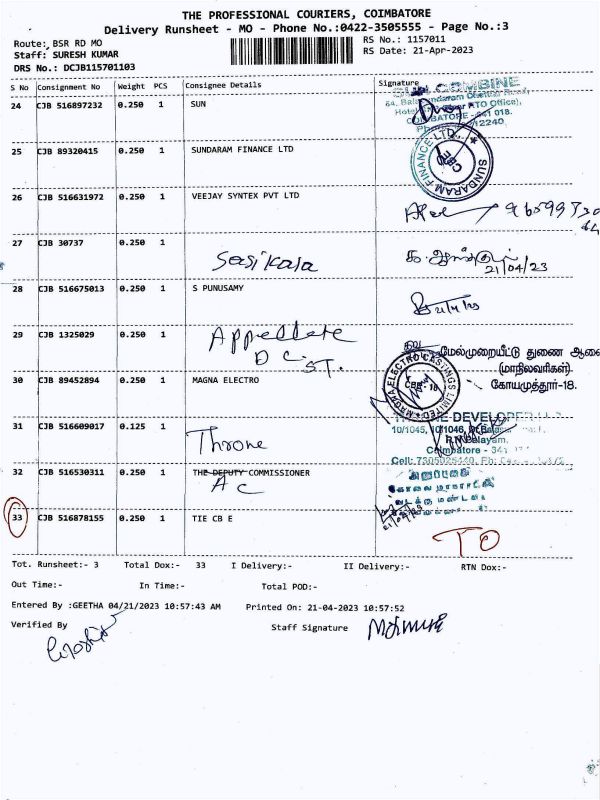 THE PROFESSIONAL COURIERS, COIMBATORE
Delivery Runsheet - MO - Phone No.:0422-3505555 - Page No.:3
Route: BSR RD MO
RS No.: 1157011
Staff: SURESH KUMAR
RS Date: 21-Apr-2023
DRS No.: DCJB115701103
S No Consignment No Weight PCS Consignee Details Signature
24 CJB 516897232 0.250 1 SUN
COMBINE
RTO Office),
COIMBATORE - 641 018.
25 CJB 89320415 0.250 1 SUNDARAM FINANCE LTD
SUNDARAM FINANCE LTD.
26 CJB 516631972 0.250 1 VEEJAY SYNTEX PVT LTD
27 CJB 30737 0.250 1
Sasikala
21/04/23
28 CJB 516675013 0.250 1 S PUNUSAMY
29 CJB 1325029 0.250 1 Appellate
D C S.T.
மேல்முறையீட்டு துணை ஆணை
(மாநிலவரிகள்).
கோயமுத்தூர்-18.
30 CJB 89452894 0.250 1 MAGNA ELECTRO
MAGNA ELECTRO CASTINGS LIMITED
CBE - 18
31 CJB 516609017 0.125 1
Throne
DEVELOPER
10/1045, 10/1046,
Coimbatore - 341
Cell: 7305025440,
32 CJB 516530311 0.250 1 THE DEPUTY COMMISSIONER
A C
33 CJB 516878155 0.250 1 TIE CB E
TO
Tot. Runsheet:- 3 Total Dox:- 33 I Delivery:- II Delivery:- RTN Dox:-
Out Time:- In Time:- Total POD:-
Entered By :GEETHA 04/21/2023 10:57:43 AM Printed On: 21-04-2023 10:57:52
Verified By
Staff Signature